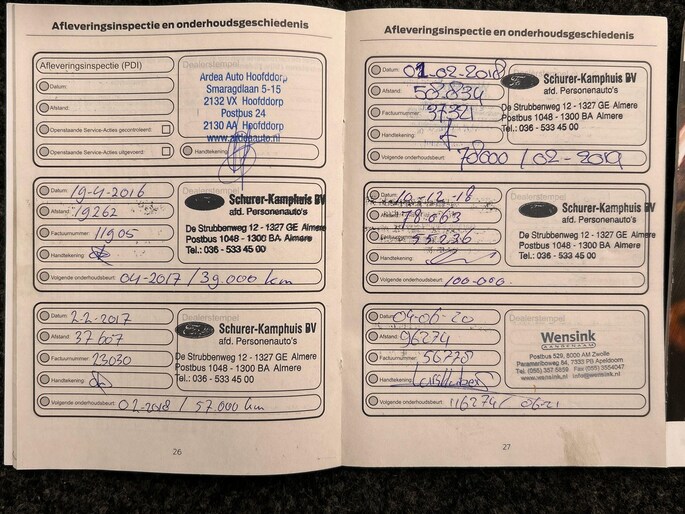 Afleveringsinspectie en onderhoudsgeschiedenis
Afleveringsinspectie (PDI)
Dealerstempel
Datum:
Afstand:
Openstaande Service-Acties gecontroleerd:
Openstaande Service-Acties uitgevoerd:
Ardea Auto Hoofddorp
Smaragdlaan 5-15
2132 VX Hoofddorp
Postbus 24
2130 AA Hoofddorp
www.ardeaauto.nl
Handtekening:
Datum: 19-4-2016
Afstand: 19262
Factuurnummer: 11905
Handtekening:
Schurer-Kamphuis BV
afd. Personenauto's
De Strubbenweg 12 - 1327 GE Almere
Postbus 1048 - 1300 BA Almere
Tel.: 036 - 533 45 00
Volgende onderhoudsbeurt: 04-2017 / 39.000 km
Datum: 2-2-2017
Afstand: 37607
Factuurnummer: 23030
Handtekening:
Dealerstempel
Schurer-Kamphuis BV
afd. Personenauto's
De Strubbenweg 12 - 1327 GE Almere
Postbus 1048 - 1300 BA Almere
Tel.: 036 - 533 45 00
Volgende onderhoudsbeurt: 02-2018 / 57.000 km
26
Afleveringsinspectie en onderhoudsgeschiedenis
Datum: 01-02-2018
Afstand: 58.834
Factuurnummer: 37321
Handtekening:
Schurer-Kamphuis BV
afd. Personenauto's
De Strubbenweg 12 - 1327 GE Almere
Postbus 1048 - 1300 BA Almere
Tel.: 036 - 533 45 00
Volgende onderhoudsbeurt: 78000 / 02-2019
Datum: 10-12-18
Afstand: 78.063
Factuurnummer: 55236
Handtekening:
Schurer-Kamphuis BV
afd. Personenauto's
De Strubbenweg 12 - 1327 GE Almere
Postbus 1048 - 1300 BA Almere
Tel.: 036 - 533 45 00
Volgende onderhoudsbeurt: 100.000.
Datum: 04-06-20
Afstand: 96274
Factuurnummer: 56778
Handtekening:
Dealerstempel
Wensink
Postbus 529, 8000 AM Zwolle
Paramariboweg 84, 7333 PB Apeldoorn
www.wensink.nl info@wensink.nl
Volgende onderhoudsbeurt: 116274 / 06-21
27